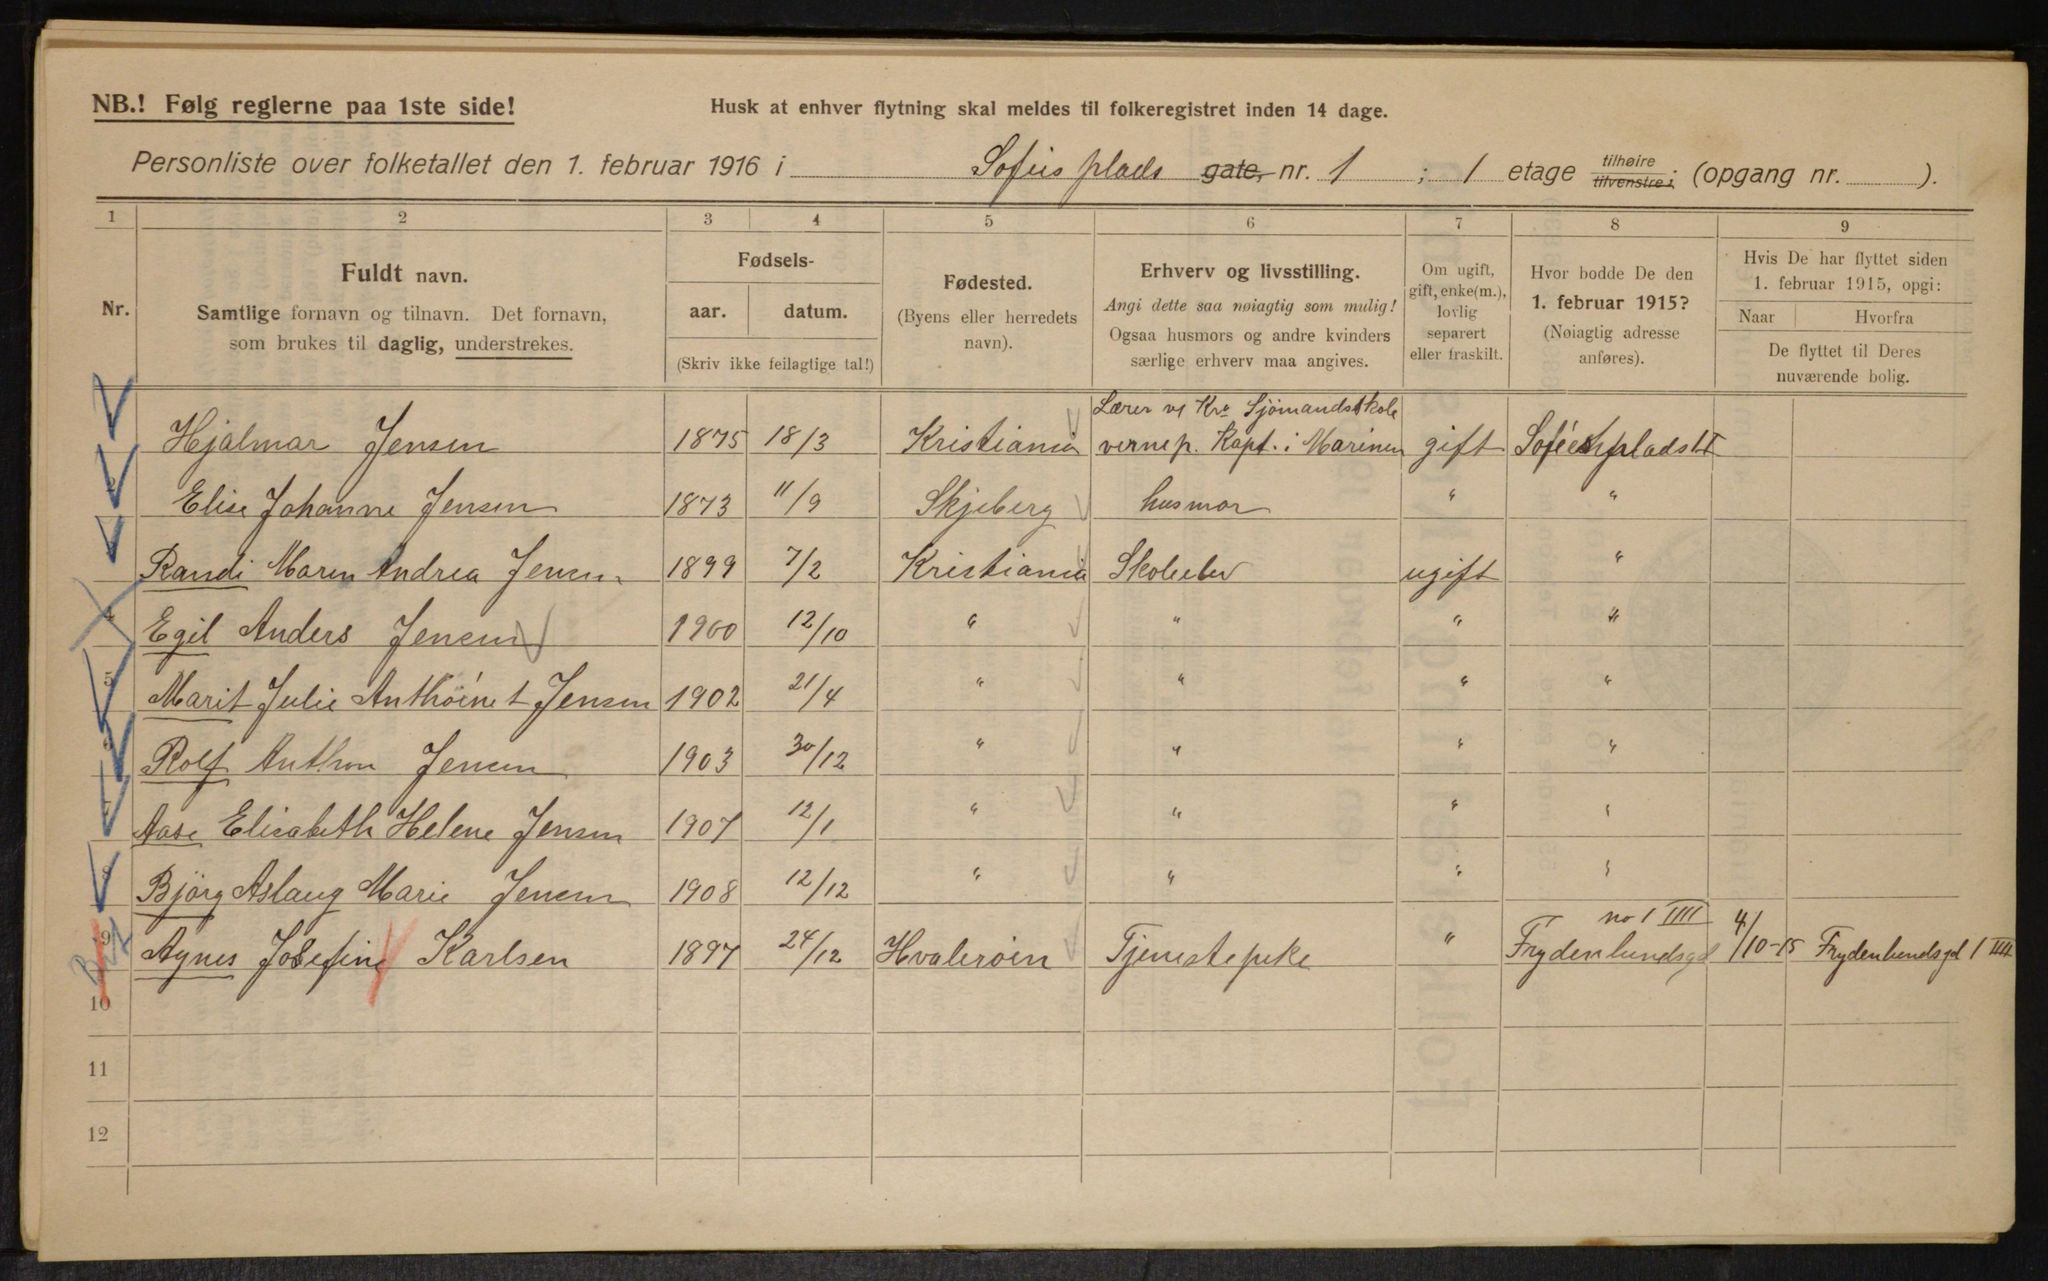 NB.! Følg reglerne paa 1ste side!
Husk at enhver flytning skal meldes til folkeregistret inden 14 dage.
Personliste over folketallet den 1. februar 1916 i Sofies plads gate, nr. 1 ; 1 etage tilhøire tilvenstre; (opgang nr. ).
1 2 3 4 5 6 7 8 9
Nr.
Fuldt navn.
Samtlige fornavn og tilnavn. Det fornavn,
som brukes til daglig, understrekes.
Fødsels-
aar. datum.
(Skriv ikke feilagtige tal!)
Fødested.
(Byens eller herredets
navn).
Erhverv og livsstilling.
Angi dette saa nøiagtig som mulig!
Ogsaa husmors og andre kvinders
særlige erhverv maa angives.
Om ugift,
gift, enke(m.),
lovlig
separert
eller fraskilt.
Hvor bodde De den
1. februar 1915?
(Nøiagtig adresse
anføres).
Hvis De har flyttet siden
1. februar 1915, opgi:
Naar Hvorfra
De flyttet til Deres
nuværende bolig.
Lærer v Kra Sjömandsskole
1 Hjalmar Jensen 1875 18/3 Kristiania vernep. Kapt. i Marinen gift Sofies plads 1 I
2 Elise Johanne Jensen 1873 11/9 Skjeberg husmor " "
Randi Maren Andrea Jensen 1899 7/2 Kristiania Skoleelev ugift "
4 Egil Anders Jensen 1900 12/10 " " " "
5 Marit Julie Anthöinet Jensen 1902 21/4 " " " "
6 Rolf Anthon Jensen 1903 30/12 " " " "
7 Aase Elisabeth Helene Jensen 1907 12/1 " " " "
8 Björg Aslaug Marie Jensen 1908 12/12 " " " "
no 1 IIII
9 Agnes Josefine Karlsen 1897 24/12 Hvalerøen Tjenestepike " Frydenlundsgd 4/10-15 Frydenlundsgd 1 IIII
10
11
12